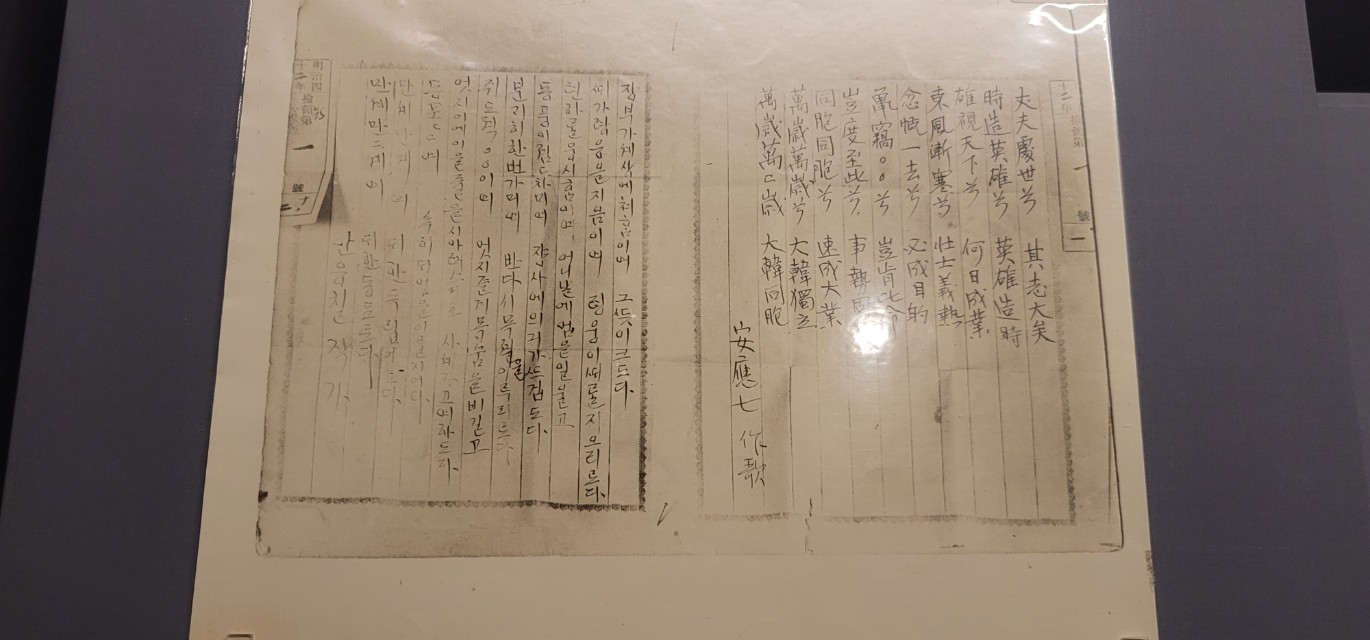 丈夫處世兮 其志大矣
時造英雄兮 英雄造時
雄視天下兮 何日成業
東風漸寒兮 壮士義熱
念慨一去兮 必成目的
鼠窃○○兮 豈肯比命
豈度至此兮 事勢固
同胞同胞兮 速成大業
萬歲萬歲兮 大韓獨立
萬歲萬々歲 大韓同胞
安應七 作歌
장부가세상에쳐함이여 그뜻이크도다.
때가영웅을지음이여 영웅이때를지으리로다.
텬하를웅시함이여 어니날에업을일울고
동풍이졈々차미여 장사에의긔가뜨겁도다.
분개히한번가미여 반다시목젹을이루리로다
쥐도젹○○이여 엇지즐계목숨을비길고
엇지이에이를줄을시아려스리요 사셰가고여하도다.
동포々여 속히 업을이룰지어다.
만세 여 독립이로다.
만세만々세여 대한동포로다
안응칠 작가.